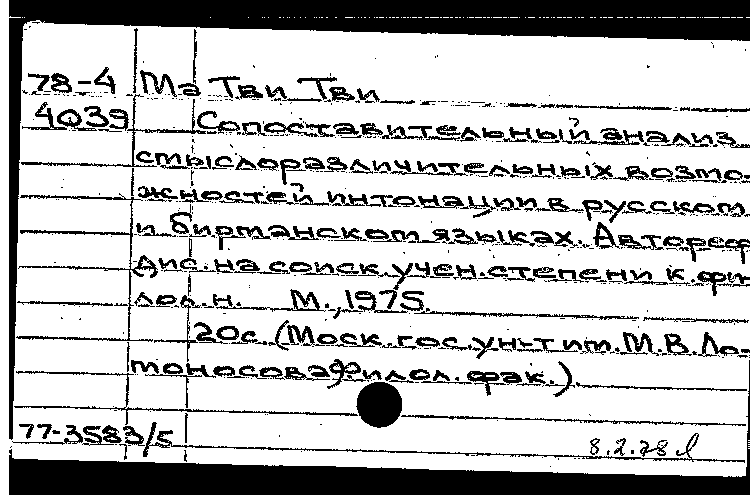 78-4 Ма Тви Тви
4039 Сопоставительный анализ
смыслоразличительных возмо-
жностей интонации в русском
и бирманском языках. Автореф
дис. на соиск. учен. степени к. фи
лол. н. М., 1975.
20с. (Моск. гос. ун-т им. М. В. Ло-
моносова Филол. фак.).
77-3583/5
8.2.78